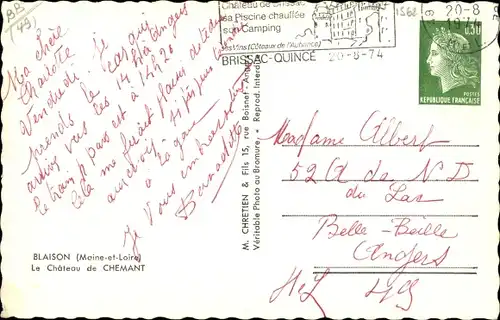 BR
(49)
Château de Brissac
sa Piscine chauffée
son Camping
ses Vins (Côteaux de l'Aubance)
BRISSAC-QUINCÉ 20-8-74
20-8
1974
0,30
POSTES
REPUBLIQUE FRANÇAISE
Ma chère
Charlotte
Vendredi je
prends le car qui
arrive vers les 14h à Angers
le train passe à 14h20
Cela me ferait plaisir de te
à la gare
Je vous embrasse
Bernadette
M. CHRETIEN & Fils 15, rue Boisnet - Angers
Véritable Photo au Bromure, * Reprod. Interdite
Madame Albert
52 R de N D
du Lac
Belle-Beille
Angers
M et L 49
BLAISON (Maine-et-Loire)
Le Château de CHEMANT